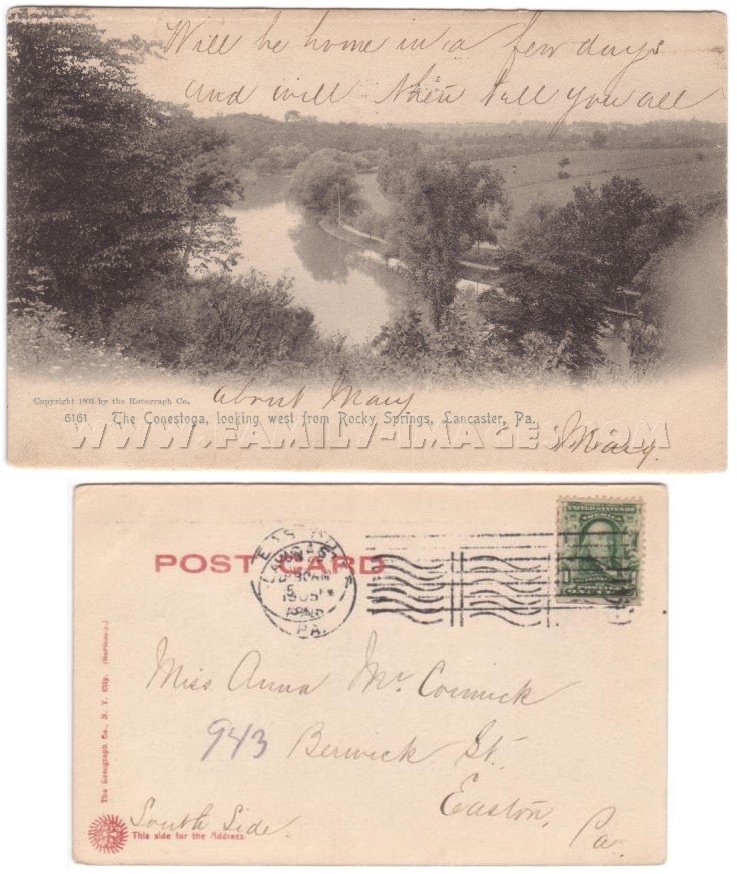 Will be home in a few days
and will then tell you all
about Mary
Copyright 1905 by the Rotograph Co.
6161 The Conestoga, looking west from Rocky Springs, Lancaster, Pa.
WWW.FAMILY-IMAGES.COM
Mary.
POST CARD
EASTON
PA.
UNITED STATES OF
AMERICA
Miss Anna McCormick
943 Berwick St.
Easton,
Pa.
South Side.
This side for the Address.
The Rotograph Co., N. Y. City. (Germany.)